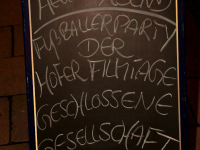 FUßBALLERPARTY
DER
HOFER FILMTAGE
GESCHLOSSENE
GESELLSCHAFT